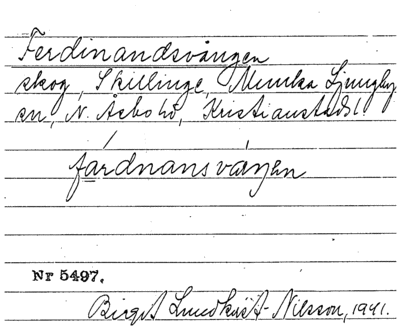 Ferdinandsvången
skog, Skillinge, Munka Ljungby
sn, N. Åsbo hd, Kristianstads l.
fárdnansvaŋen
Nr 5497.
Birgit Lundkvist-Nilsson, 1941.